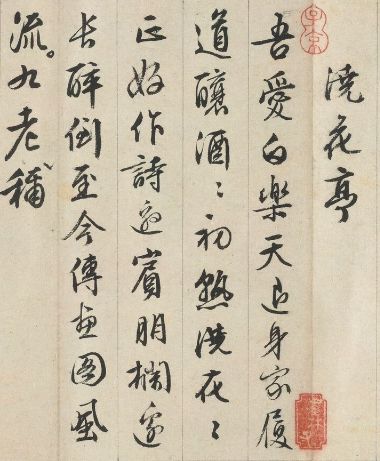 澆花亭
吾愛白樂天退身家履
道釀酒〻初熟澆花〻
正好作詩邀賓朋欄邊
長醉倒至今傳畫圖風
流九老稱